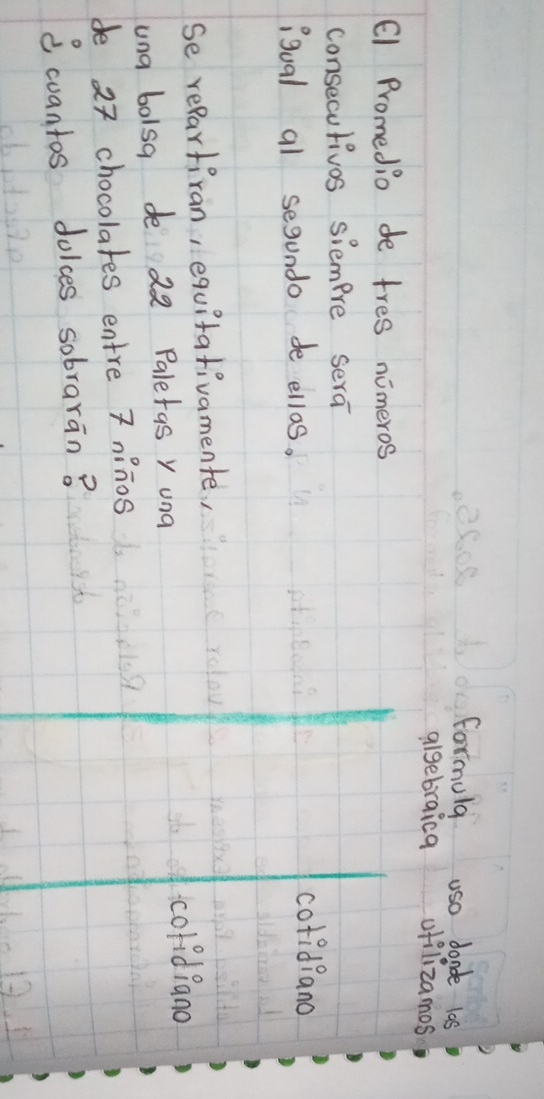 formula
algebraica
uso donde las
utilizamos
El Promedio de tres números
consecutivos siempre será
igual al segundo de ellos.
cotidiano
Se repartiran equitativamente,
una bolsa de 22 Paletas y una
de 27 chocolates entre 7 niños
¿cuantos dulces sobrarán?
cotidiano